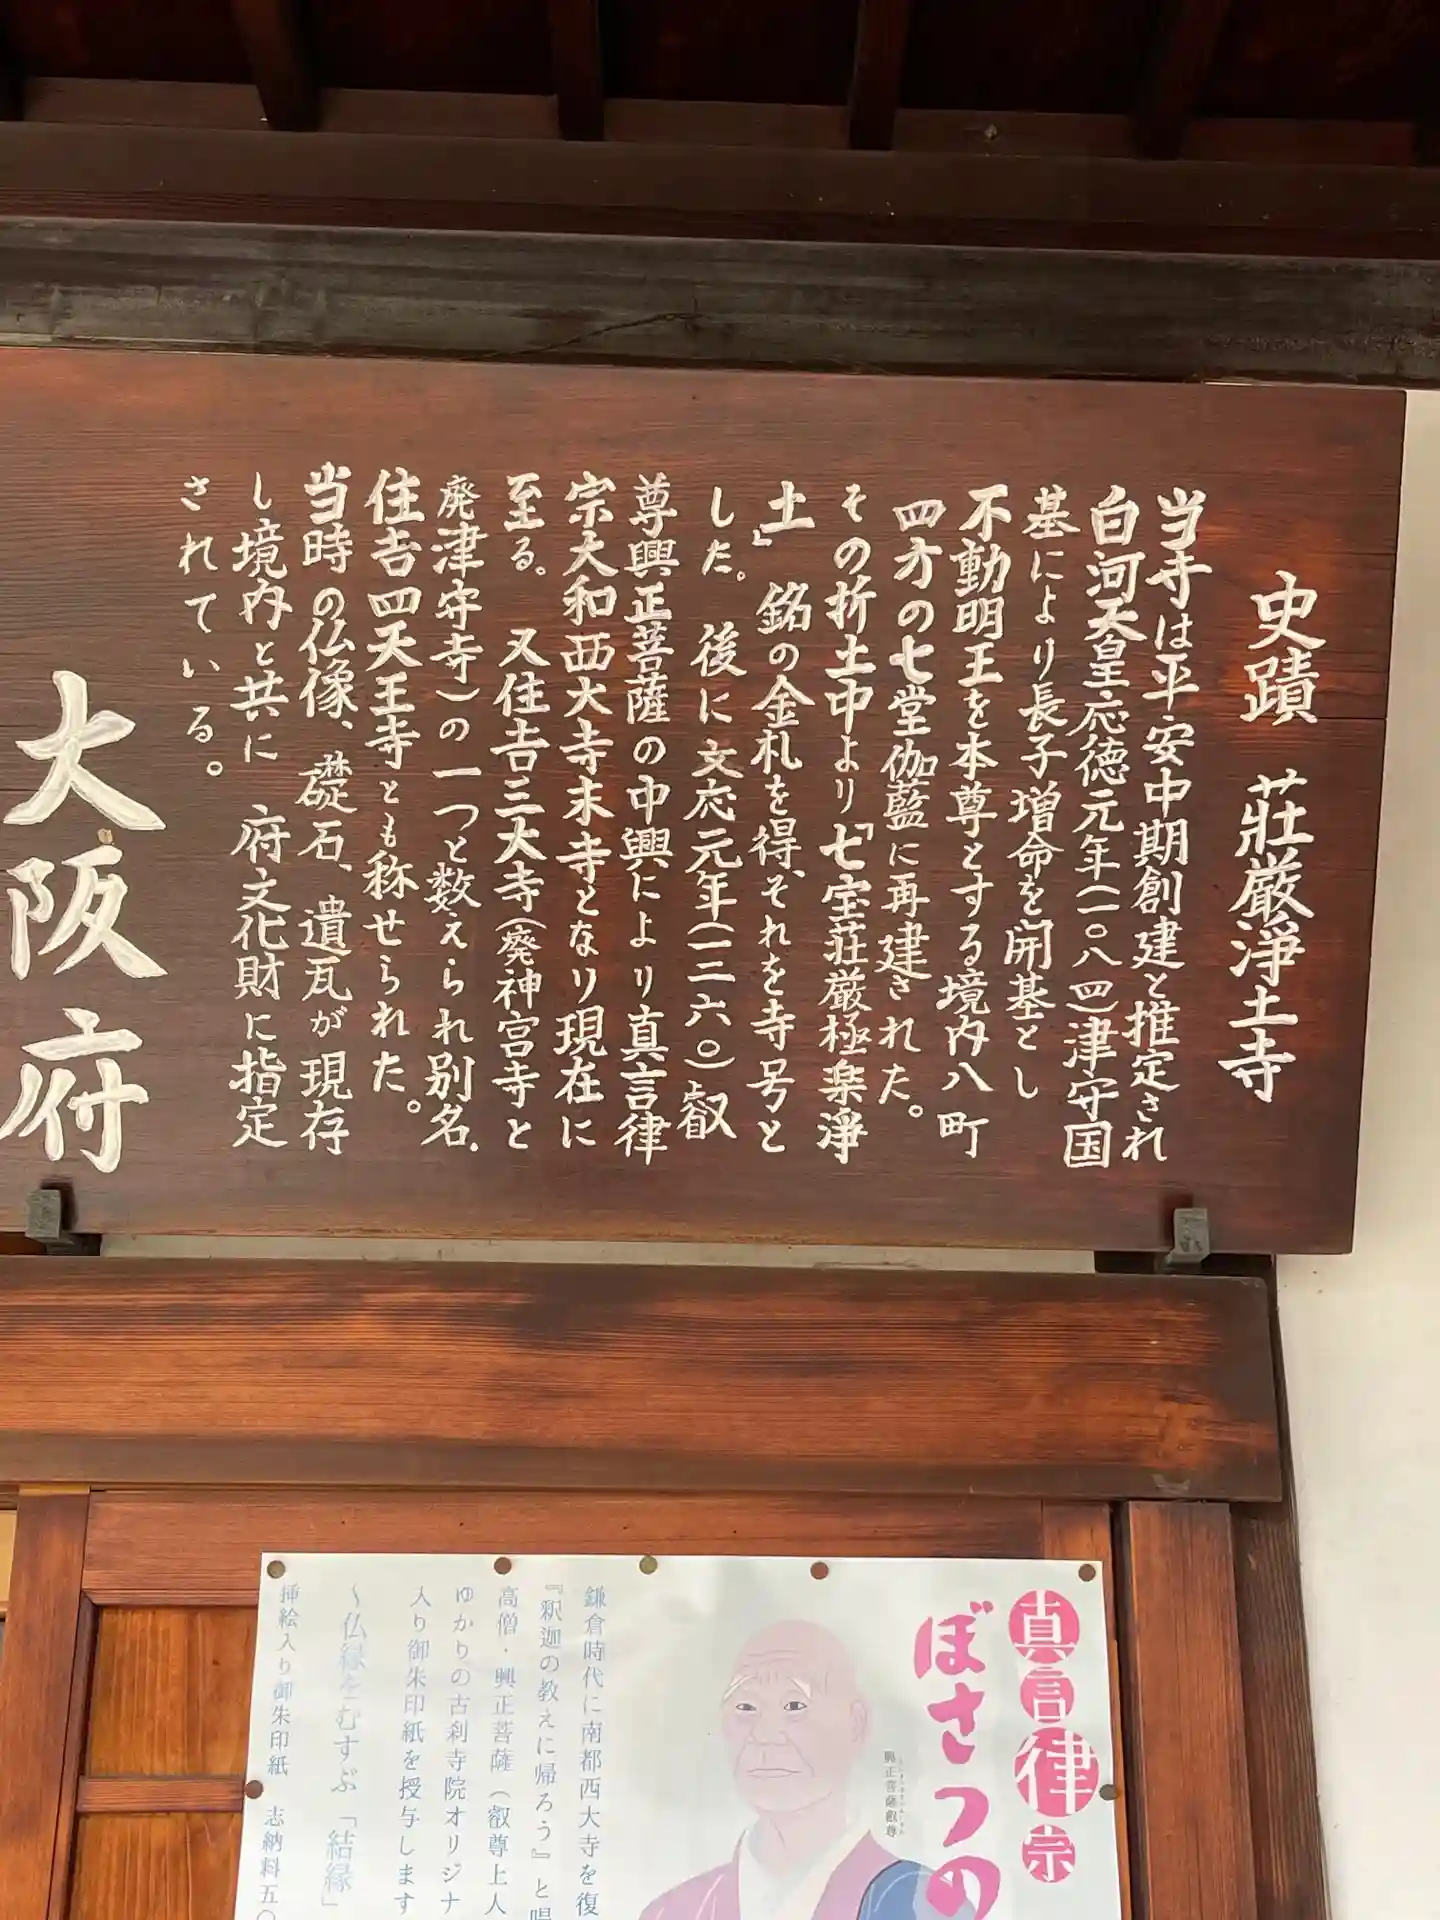 史蹟 荘厳浄土寺
当寺は平安中期創建と推定され
白河天皇応徳元年(一〇八四)津守国
基により長子増命を開基とし
不動明王を本尊とする境内八町
四方の七堂伽藍に再建された。
その折土中より「七宝荘厳極楽浄
土」銘の金札を得、それを寺号と
した。後に文応元年(一二六〇)叡
尊興正菩薩の中興により真言律
宗大和西大寺末寺となり現在に
至る。 又住吉三大寺(廃神宮寺と
廃津守寺)の一つと数えられ別名.
住吉四天王寺とも称せられた。
当時の仏像、礎石、遺瓦が現存
し境内と共に 府文化財に指定
されている。
大阪府
真言律宗
ぼさつの
興正菩薩叡尊
鎌倉時代に南都西大寺を復
『釈迦の教えに帰ろう』と唱
高僧・興正菩薩(叡尊上人
ゆかりの古刹寺院オリジナ
入り御朱印紙を授与します
〜仏縁をむすぶ「結縁」
挿絵入り御朱印紙 志納料五〇